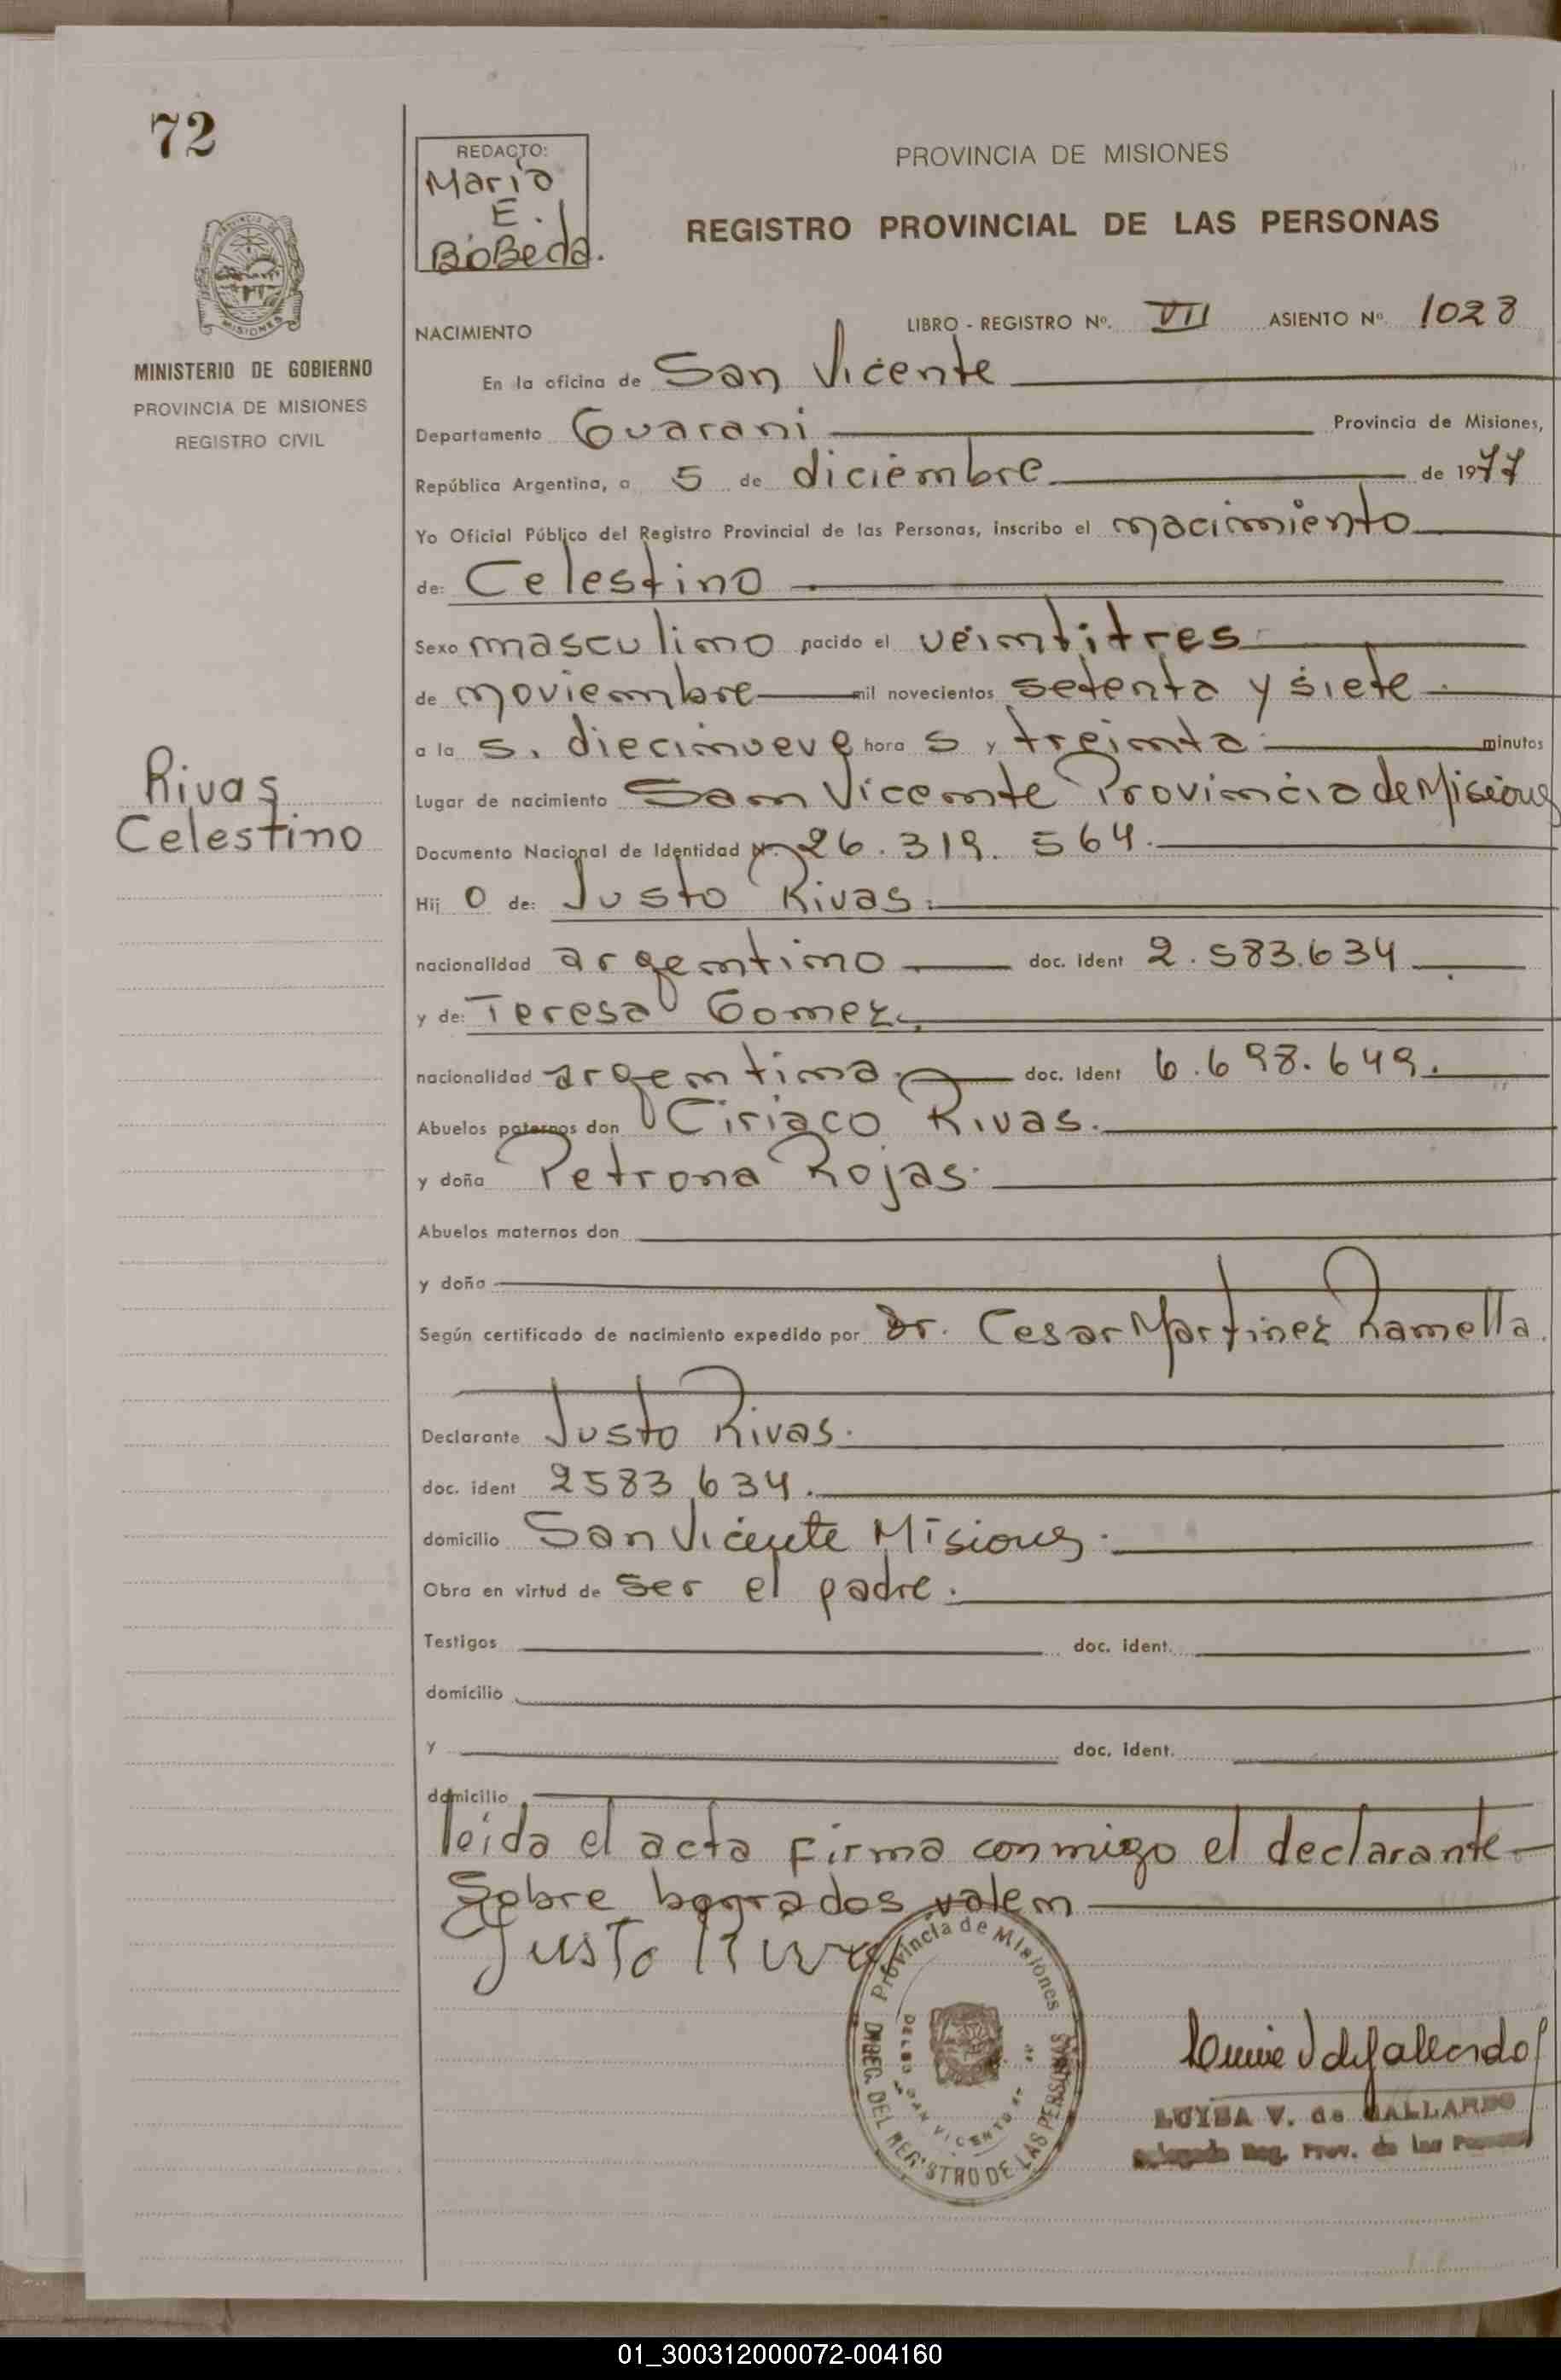 72
REDACTO:
Maria
E.
BoBeda.
PROVINCIA DE MISIONES
REGISTRO PROVINCIAL DE LAS PERSONAS
MISIONES
MINISTERIO DE GOBIERNO
PROVINCIA DE MISIONES
REGISTRO CIVIL
NACIMIENTO
LIBRO - REGISTRO Nº. VII ASIENTO Nº. 1028
En la oficina de San Vicente
Departamento Guarani Provincia de Misiones,
República Argentina, a 5 de diciembre de 1977
Yo Oficial Público del Registro Provincial de las Personas, inscribo el nacimiento
de: Celestino
Sexo masculino nacido el veintitres
de noviembre mil novecientos setenta y siete
a la s. diecinueve hora s y treinta minutos
Rivas
Celestino
Lugar de nacimiento San Vicente Provincia de Misiones
Documento Nacional de Identidad Nº. 26.319.564.
Hij o de: Justo Rivas.
nacionalidad argentino doc. Ident 2.583.634
y de: Teresa Gomez.
nacionalidad argentina. doc. Ident 6.698.649.
Abuelos paternos don Ciriaco Rivas.
y doña Petrona Rojas.
Abuelos maternos don
y doña
Según certificado de nacimiento expedido por Dr. Cesar Martinez Ramella.
Declarante Justo Rivas.
doc. ident 2583.634.
domicilio San Vicente Misiones.
Obra en virtud de ser el padre.
Testigos doc. ident.
domicilio
y doc. ident.
domicilio
leida el acta firma conmigo el declarante
Sobre borrados valen
Justo Rivas
Provincia de Misiones
DIREC. DEL REGISTRO DE LAS PERSONAS
SAN VICENTE
LUISA V. de GALLARDO
Delegada Reg. Prov. de las Personas
01_300312000072-004160